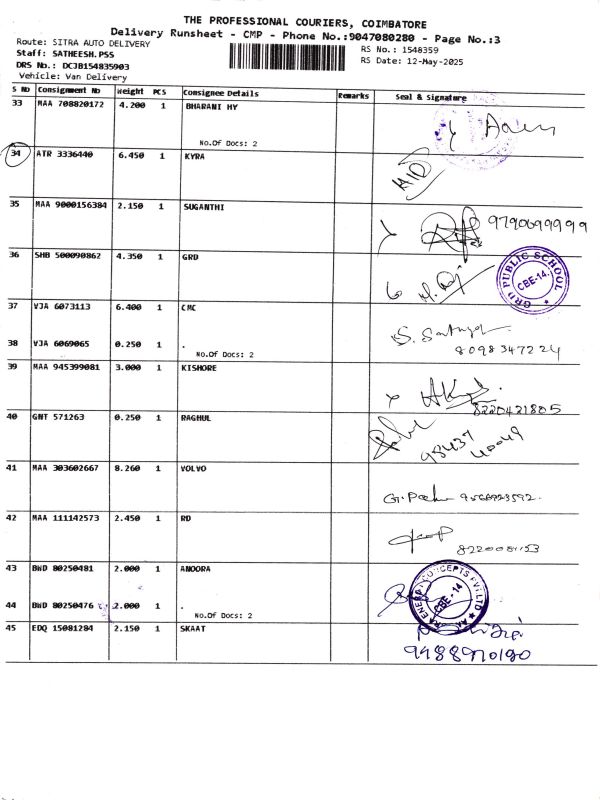 THE PROFESSIONAL COURIERS, COIMBATORE
Delivery Runsheet - CMP - Phone No.:9047080280 - Page No.:3
Route: SITRA AUTO DELIVERY
RS No.: 1548359
Staff: SATHEESH.PSS
RS Date: 12-May-2025
DRS No.: DCJB154835903
Vehicle: Van Delivery
S No Consignment No Weight PCS Consignee Details Remarks Seal & Signature
33 MAA 708820172 4.200 1 BHARANI HY
No.Of Docs: 2
34 ATR 3336440 6.450 1 KYRA
35 MAA 9000156384 2.150 1 SUGANTHI
9790699999
36 SHB 500090862 4.350 1 GRD
GRD PUBLIC SCHOOL
CBE-14.
37 VJA 6073113 6.400 1 CMC
38 VJA 6069065 0.250 1 .
No.Of Docs: 2
8098347224
39 MAA 945399081 3.000 1 KISHORE
8220421805
40 GNT 571263 0.250 1 RAGHUL
98437
40049
41 MAA 303602667 8.260 1 VOLVO
42 MAA 111142573 2.450 1 RD
43 BWD 80250481 2.000 1 ANOORA
44 BWD 80250476 2.000 1 .
No.Of Docs: 2
CBE-14
45 EDQ 15081284 2.150 1 SKAAT